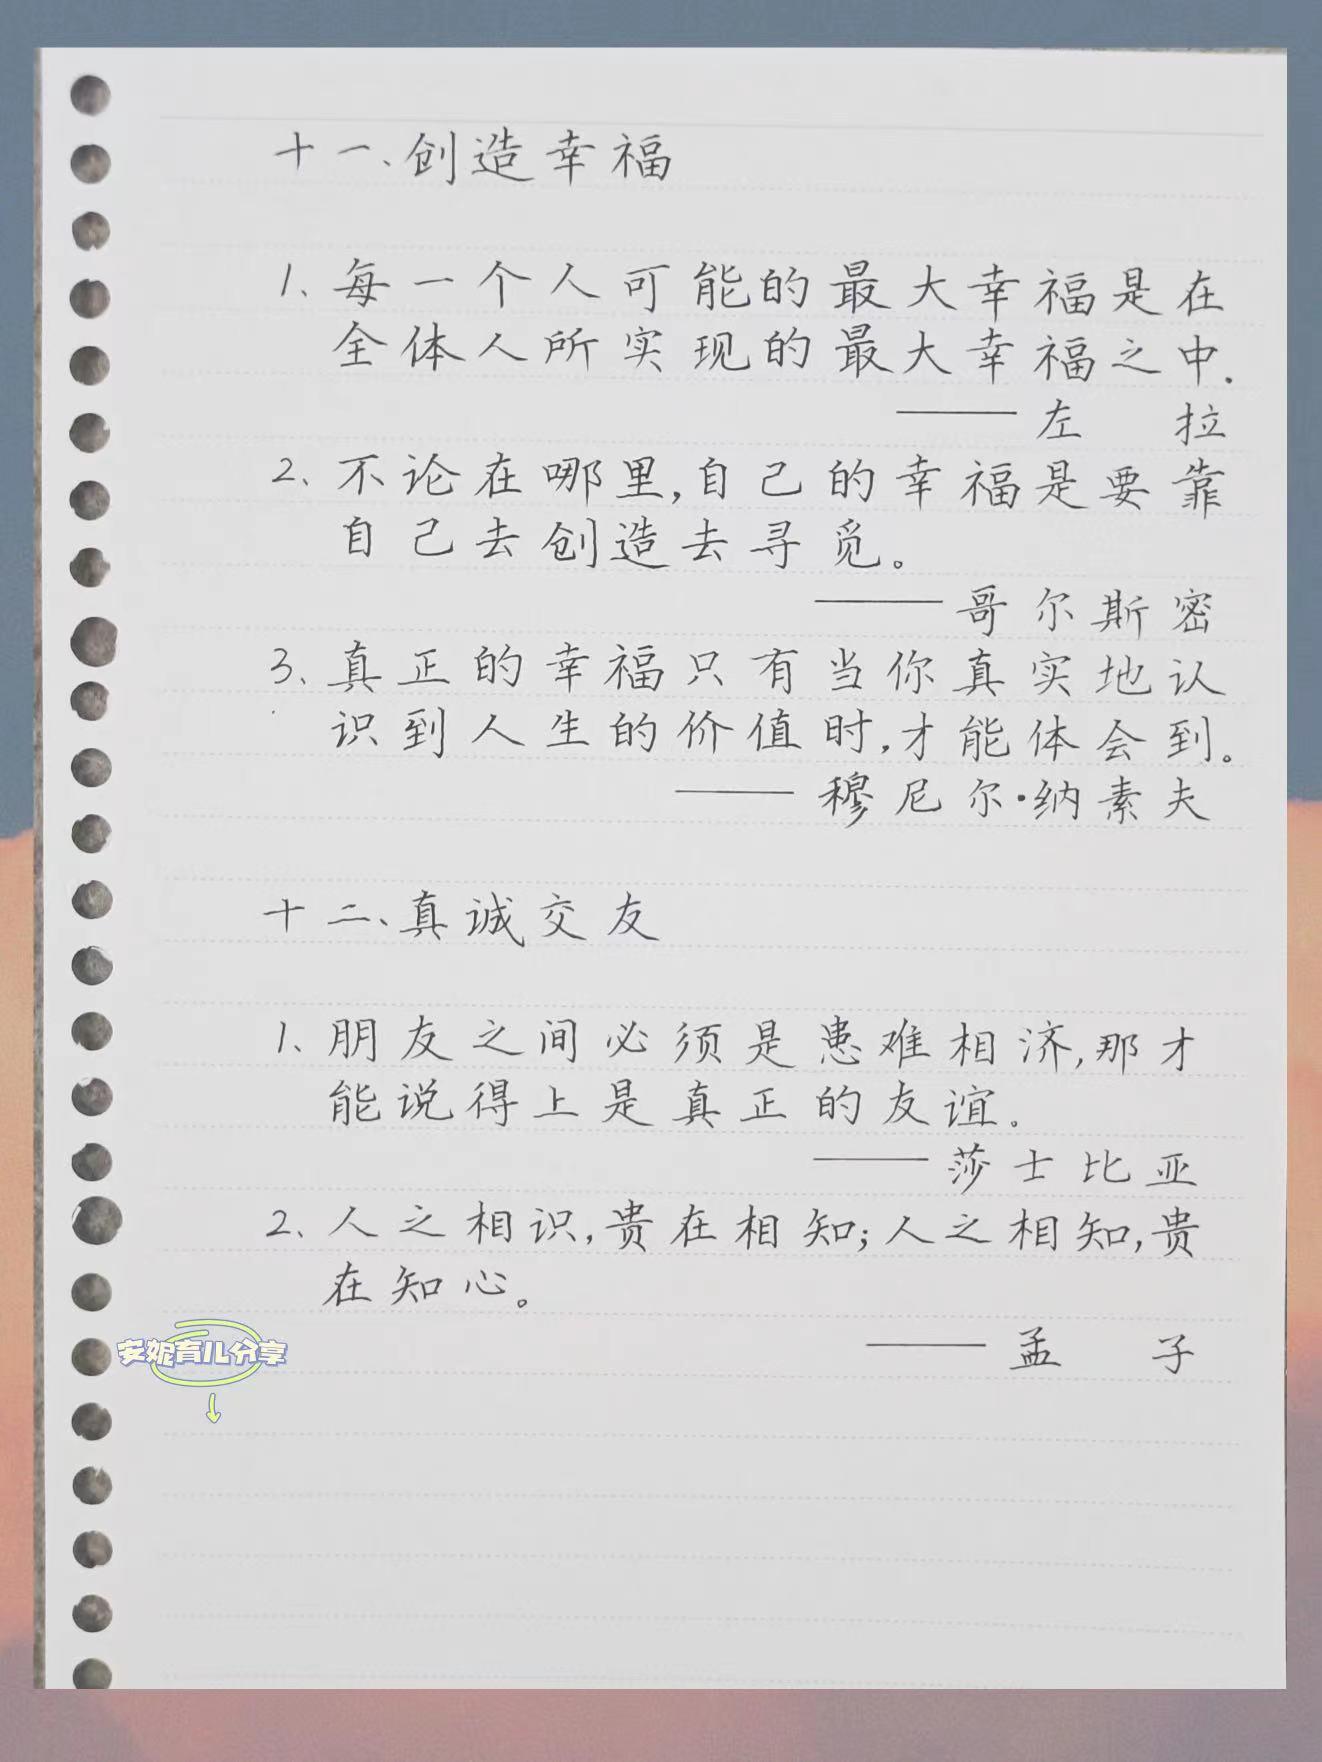 十一、创造幸福
1、每一个人可能的最大幸福是在
全体人所实现的最大幸福之中.
——左 拉
2、不论在哪里,自己的幸福是要靠
自己去创造去寻觅。
——哥尔斯密
3、真正的幸福只有当你真实地认
识到人生的价值时,才能体会到。
——穆尼尔·纳素夫
十二、真诚交友
1、朋友之间必须是患难相济,那才
能说得上是真正的友谊。
——莎士比亚
2、人之相识,贵在相知;人之相知,贵
在知心。
——孟 子
安妮育儿分享